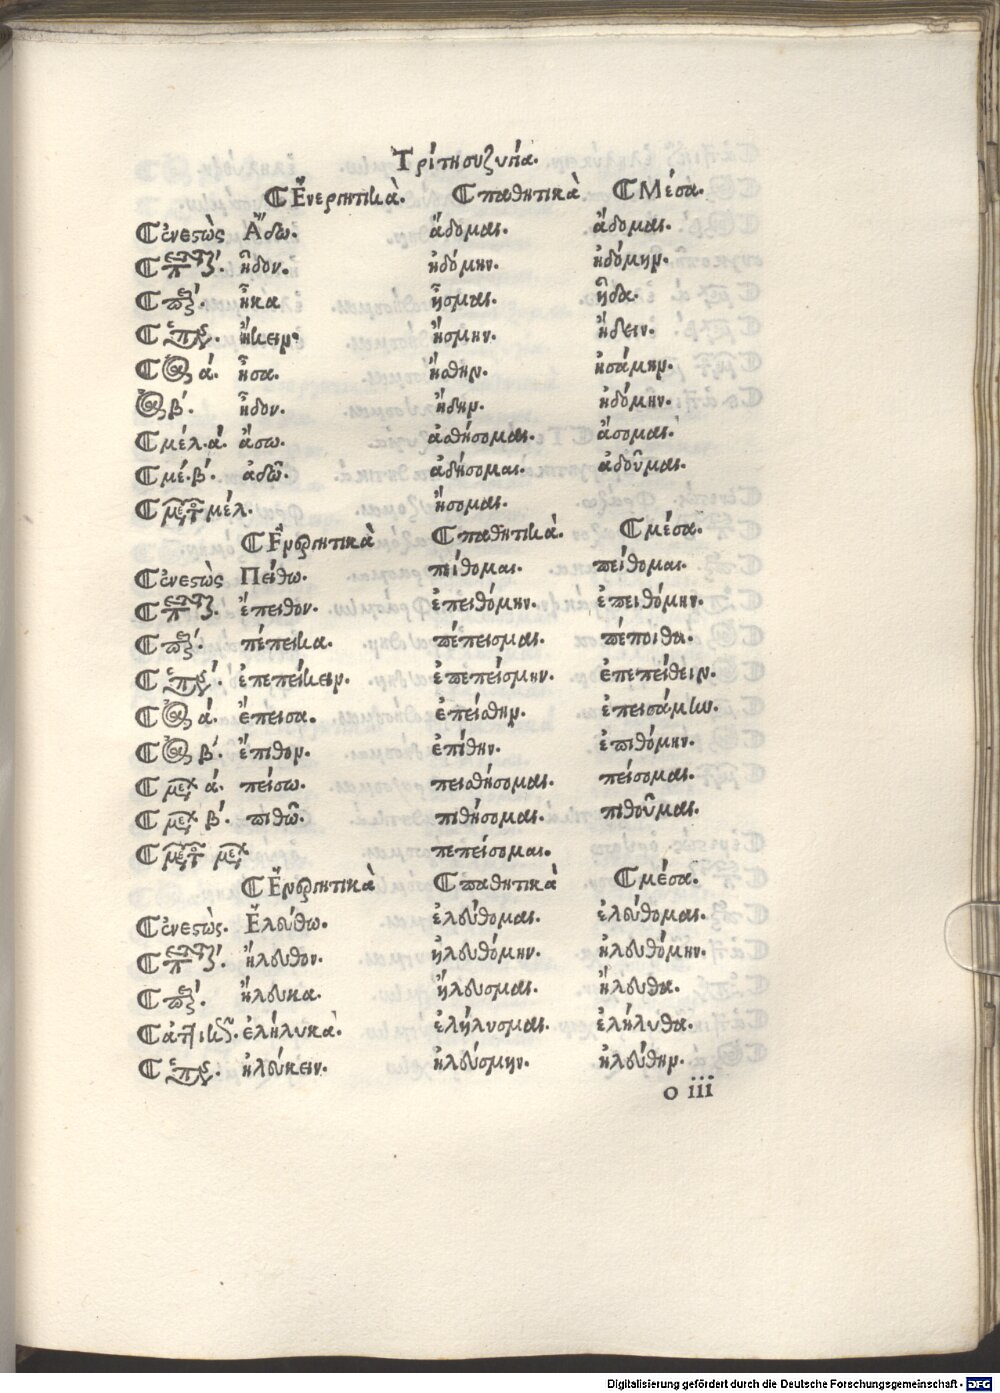 Τρίτη συζυγία.
Ἐνεργητικὰ. παθητικὰ Μέσα.
ἐνεστὼς Ἄδω. ἄδομαι. ἄδομαι.
ἦδον. ἠδόμην. ἠδόμην.
ἦκα ἦσμαι. ἦδα.
ἤκειν. ἤσμην. ἤδειν.
ά. ἦσα. ἤσθην. ἠσάμην.
β΄. ἦδον. ἤδην. ἠδόμην.
μέλ. ά. ἄσω. ἀσθήσομαι. ἄσομαι.
μέ. β΄. ἀδῶ. ἀδήσομαι. ἀδοῦμαι.
μέλ. ἤσομαι.
Ἐνεργητικὰ παθητικὰ. μέσα.
ἐνεστὼς Πείθω. πείθομαι. πείθομαι.
ἔπειθον. ἐπειθόμην. ἐπειθόμην.
πέπεικα. πέπεισμαι. πέποιθα.
ἐπεπείκειν. ἐπεπείσμην. ἐπεποίθειν.
ά. ἔπεισα. ἐπείσθην. ἐπεισάμην.
β΄. ἔπιθον. ἐπίθην. ἐπιθόμην.
ά. πείσω. πεισθήσομαι. πείσομαι.
β΄. πιθῶ. πιθήσομαι. πιθοῦμαι.
πεπείσομαι.
Ἐνεργητικὰ παθητικὰ μέσα.
ἐνεστὼς. Ἐλούθω. ἐλούθομαι. ἐλούθομαι.
ἤλουθον. ἠλουθόμην. ἠλουθόμην.
ἤλουκα. ἤλουσμαι. ἤλουθα.
ἐλήλυκα. ἐλήλυσμαι. ἐλήλυθα.
ἠλούκειν. ἠλούσμην. ἠλούθην.
o iii
Digitalisierung gefördert durch die Deutsche Forschungsgemeinschaft - DFG